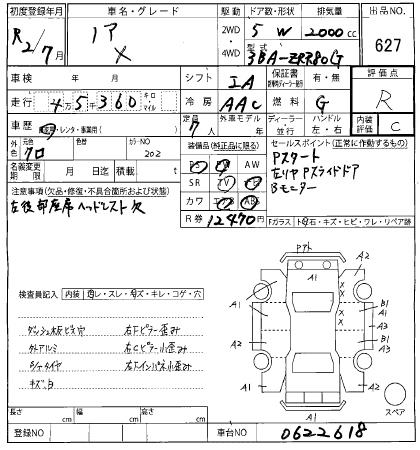 初度登録年月 車名・グレード 駆動 ドア数・形状 排気量 出品NO.
R2/7月 ノア X 2WD 4WD 5 W 2000cc 627
型式 3BA-ZRR80G
車検 年 月 シフト IA 保証書 有・無 評価点
走行 45360 キロ マイル 冷房 AAC 燃料 G R
車歴 自家用・レンタ・事業用( ) 定員 7人 外車モデル 年 ディーラー 並行 ハンドル 左・右 内装評価 C
外色 元色 クロ カラーNO 202 装備品(純正品に限る) セールスポイント(正常に作動するもの)
名義変更期限 月 日迄 積載 t PS PW AW
SR TV ナビ
カワ エアB ABS
Pスタート
左リヤPスライドドア
Bモニター
注意事項(欠品・修復・不具合箇所および状態)
左後部座席ヘッドレスト欠
R券 12470円 Fガラス トビ石・キズ・ヒビ・ワレ・リペア跡
検査員記入 内装 汚レ・スレ・キズ・キレ・コゲ・穴
ダッシュ板ビス穴 右Fピラー歪み
外アルミ 右Cピラー小歪み
タイヤ 右Fインパネ小歪み
キズ、凹
Pアト
A1 A2
A1 A1 B1 A1 A3
X X X
A2 A1 A2
A1
スペア
長さ cm 幅 cm 高さ cm
登録NO 車台NO 0622618